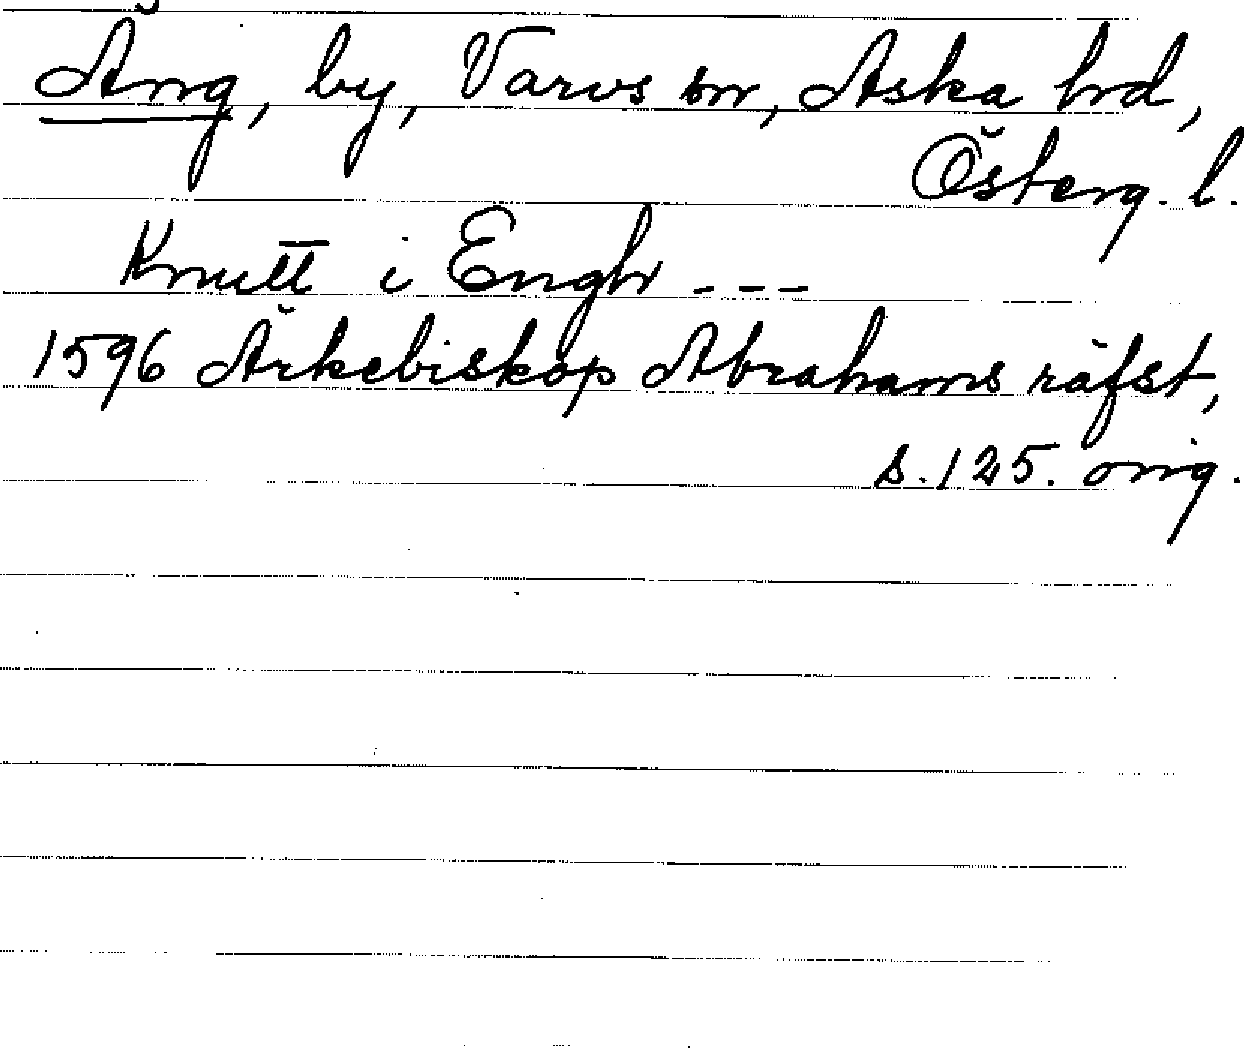 Äng, by, Varvs sn, Aska hd,
Österg. l.
Knutt i Engh ---
1596 Ärkebiskop Abrahams räfst,
s. 125. orig.